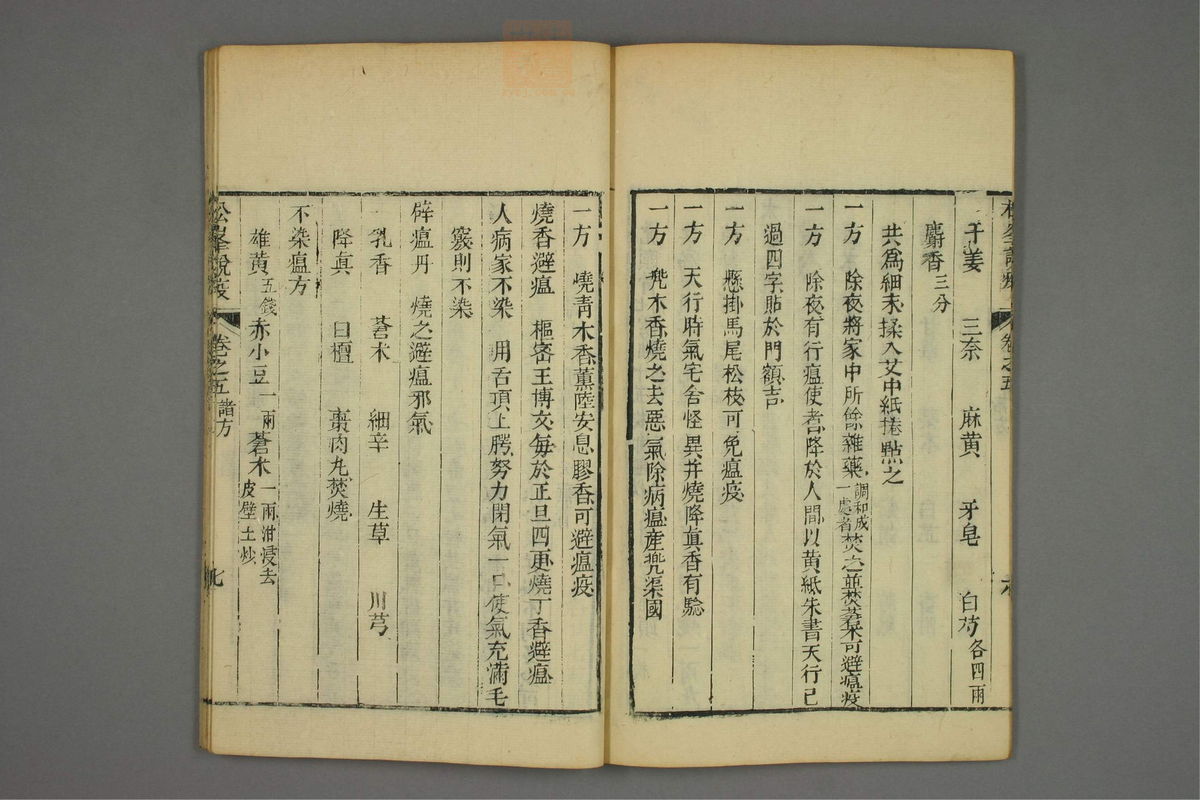 干姜 三奈 麻黄 牙皂 白芍各四兩
麝香三分
共爲細末揉入艾中紙捲點之
一方 除夜將家中所餘雜藥調和成一處者焚之並焚蒼朮可避瘟疫
一方 除夜有行瘟使者降於人間以黄紙朱書天行已
過四字貼於門額吉
一方 懸掛馬尾松枝可免瘟疫
一方 天行時氣宅舍怪異并燒降真香有騐
一方 兠木香燒之去惡氣除病瘟産兠渠國
一方 燒青木香薰陸安息膠香可避瘟疫
燒香避瘟 樞密王博文每於正旦四更燒丁香避瘟
人病家不染 用舌頂上腭努力閉氣一口使氣充滿毛
竅則不染
辟瘟丹 燒之避瘟邪氣
乳香 蒼朮 細辛 生草 川芎
降真 白檀 棗肉丸焚燒
不染瘟方
雄黄五錢 赤小豆一兩 蒼朮一兩泔浸去皮壁土炒
松峯說疫 卷之五 諸方 七